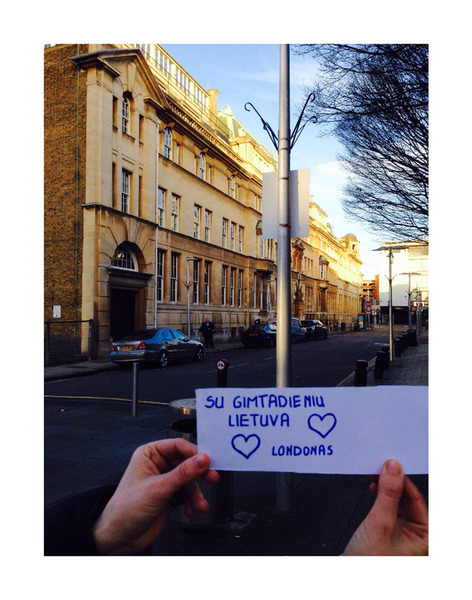 SU GIMTADIENIU
LIETUVA
LONDONAS